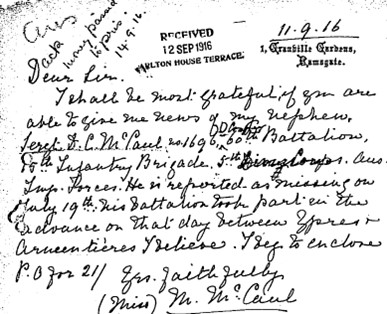 Ans
Dack
many paind
to pris.
14.9.16.
RECEIVED
12 SEP 1916
CARLTON HOUSE TERRACE
11.9.16
1, Granville Gardens,
Ramsgate.
Dear Sir.
I shall be most grateful, if you are
able to give me news of my nephew,
Sergt D. C. McCaul no. 1696, D Coy 60th Battalion,
15th Infantry Brigade, 5th Aus.
Imp. Forces. He is reported as missing on
July 19th. His battalion took part in the
advance on that day between Ypres &
Armentières I believe. I beg to enclose
P.O for 2/1 Yrs. faithfully
(Miss) M. McCaul